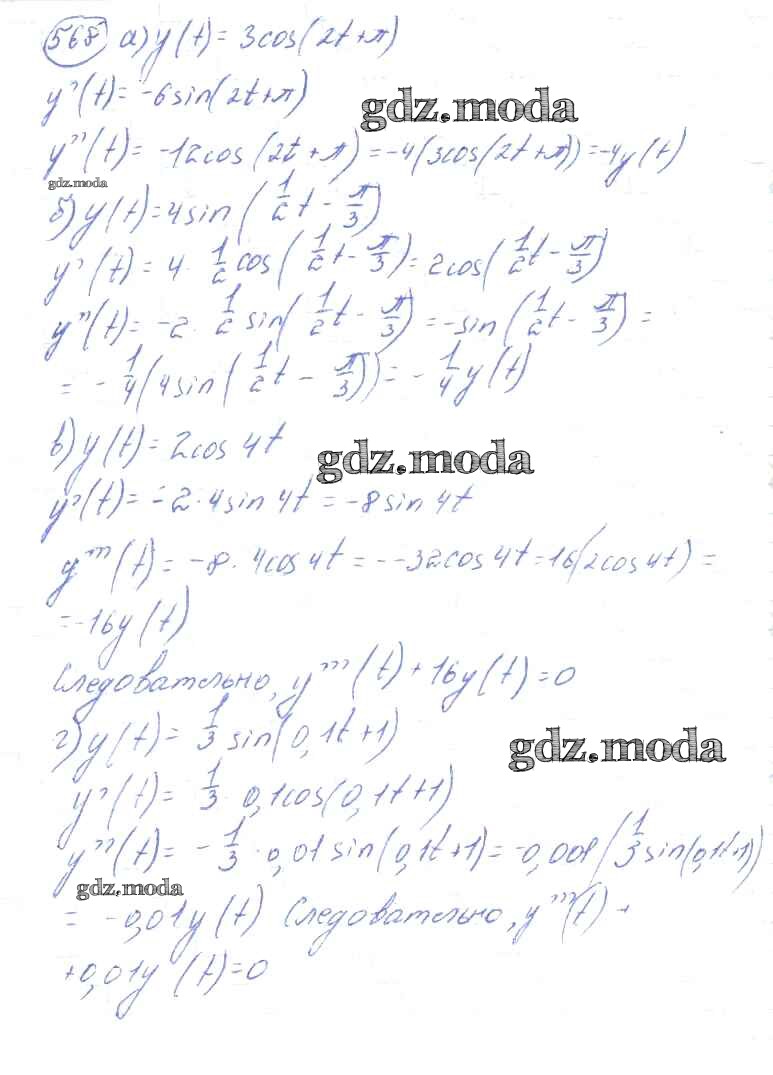 568 а) y(t) = 3cos(2t+π)
y'(t) = -6sin(2t+π)
gdz.moda
y''(t) = -12cos(2t+π) = -4(3cos(2t+π)) = -4y(t)
gdz.moda
б) y(t) = 4sin(1/2t - π/3)
y'(t) = 4·1/2cos(1/2t - π/3) = 2cos(1/2t - π/3)
y''(t) = -2·1/2sin(1/2t - π/3) = -sin(1/2t - π/3) =
= -1/4(4sin(1/2t - π/3)) = -1/4y(t)
в) y(t) = 2cos4t
gdz.moda
y'(t) = -2·4sin4t = -8sin4t
y'''(t) = -8·4cos4t = --32cos4t = 16(2cos4t) =
= -16y(t)
Следовательно, y'''(t) + 16y(t) = 0
г) y(t) = 1/3sin(0,1t+1)
gdz.moda
y'(t) = 1/3·0,1cos(0,1t+1)
y''(t) = -1/3·0,01sin(0,1t+1) = -0,001(1/3sin(0,1t+1))
gdz.moda
= -0,01y(t) Следовательно, y'''(t) +
+0,01y(t) = 0